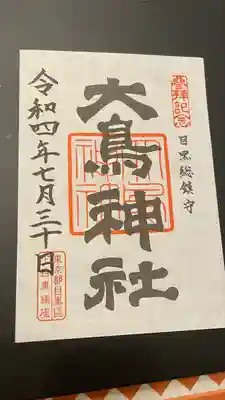 登拝記念
目黒総鎮守
大鳥神社
令和四年七月三十日
東京都目黒區